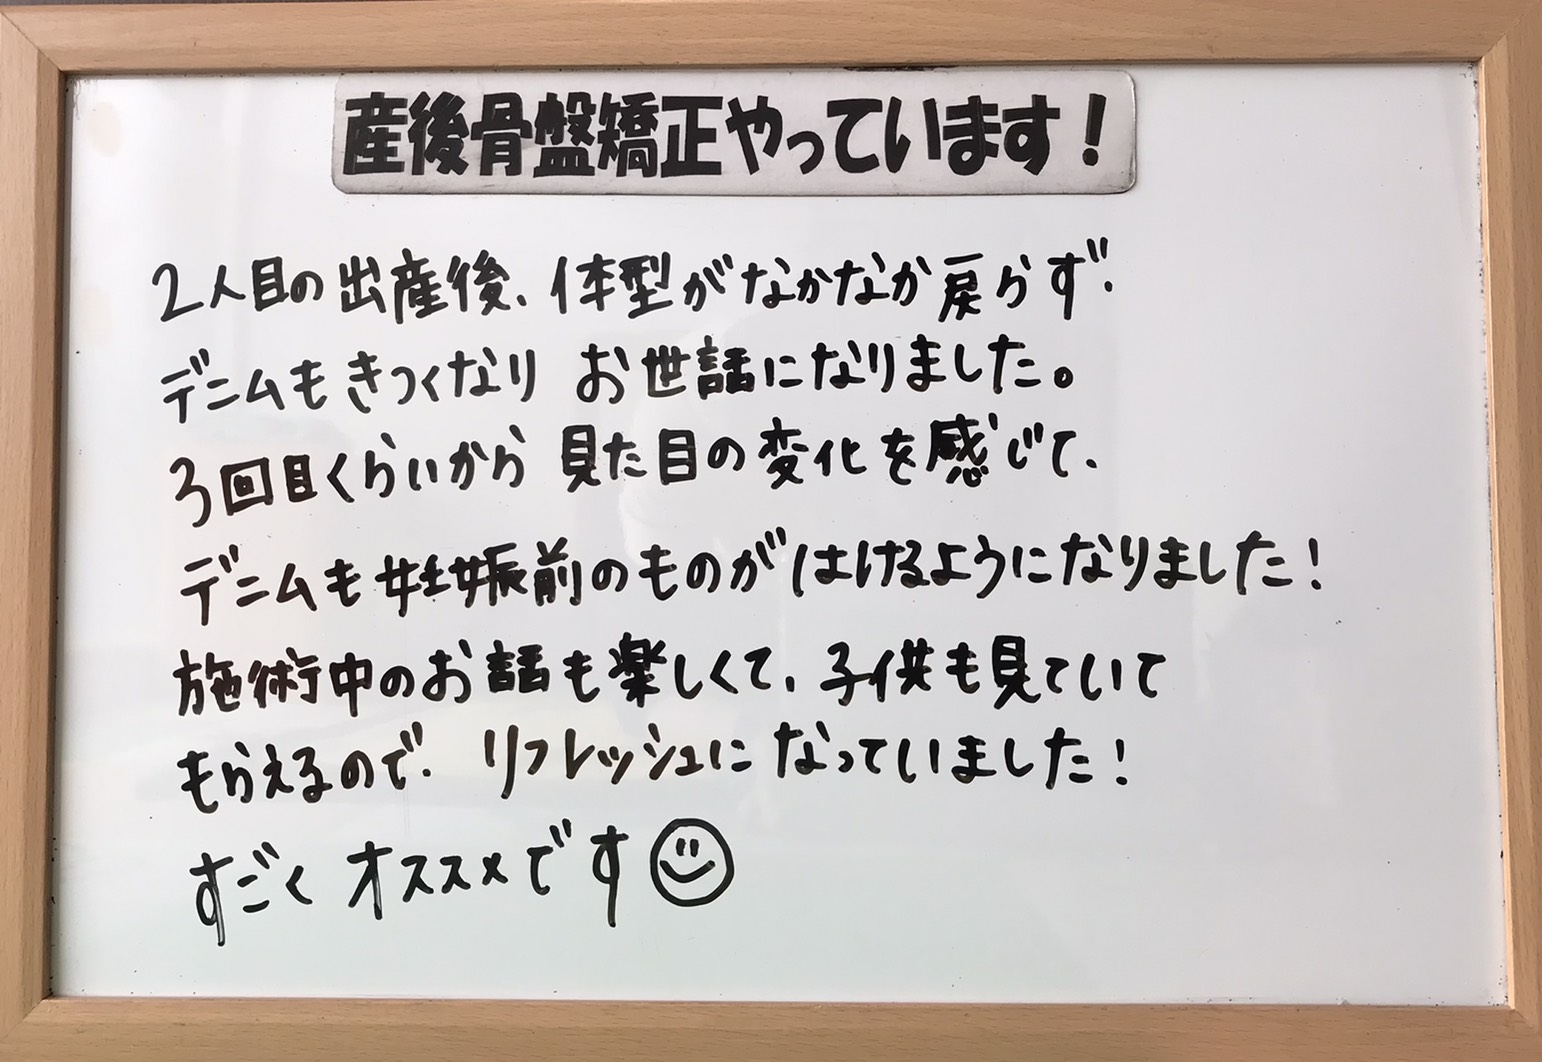 産後骨盤矯正やっています！
2人目の出産後、体型がなかなか戻らず、
デニムもきつくなり お世話になりました。
3回目くらいから 見た目の変化を感じて、
デニムも妊娠前のものがはけるようになりました！
施術中のお話も楽しくて、子供も見ていて
もらえるので、リフレッシュになっていました！
すごくオススメです☺